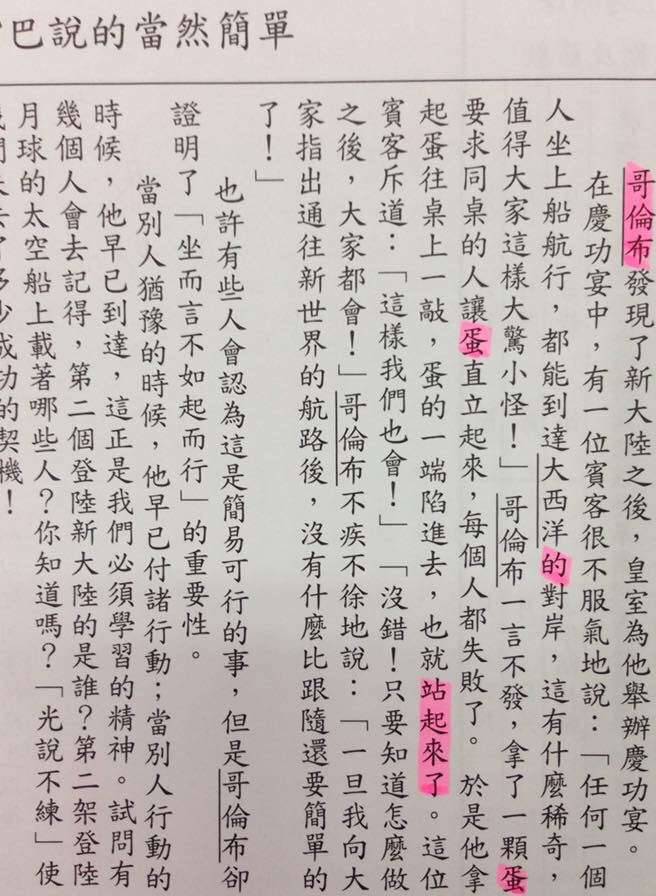 巴說的當然簡單
哥倫布發現了新大陸之後，皇室為他舉辦慶功宴。
在慶功宴中，有一位賓客很不服氣地說：「任何一個
人坐上船航行，都能到達大西洋的對岸，這有什麼稀奇，
值得大家這樣大驚小怪！」哥倫布一言不發，拿了一顆蛋
要求同桌的人讓蛋直立起來，每個人都失敗了。於是他拿
起蛋往桌上一敲，蛋的一端陷進去，也就站起來了。這位
賓客斥道：「這樣我們也會！」「沒錯！只要知道怎麼做
之後，大家都會！」哥倫布不疾不徐地說：「一旦我向大
家指出通往新世界的航路後，沒有什麼比跟隨還要簡單的
了！」
也許有些人會認為這是簡易可行的事，但是哥倫布卻
證明了「坐而言不如起而行」的重要性。
當別人猶豫的時候，他早已付諸行動；當別人行動的
時候，他早已到達，這正是我們必須學習的精神。試問有
幾個人會去記得，第二個登陸新大陸的是誰？第二架登陸
月球的太空船上載著哪些人？你知道嗎？「光說不練」使
們失去了多少成功的契機！